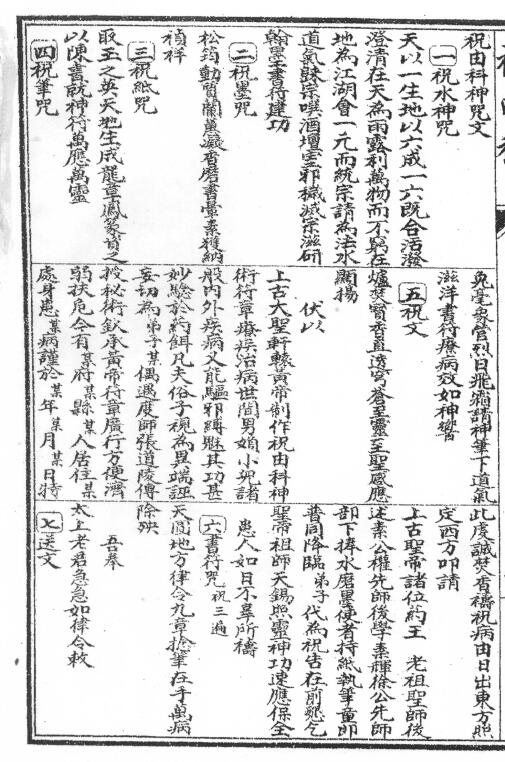 祝由科神咒文
一 祝水神咒
天以一生地以六成一六既合活潑
澄清在天為雨露利萬物而不窮在
地為江湖會一元而統宗請為法水
道氣宗噀酒壇室邪穢滅宗滋研
翰墨書符建功
二 祝墨咒
松筠動質蘭薰凝香磨書彙素獲納
禎祥
三 祝紙咒
取玉之英天地生成龍章鳳篆首之
以陳書就神符萬應萬靈
四 祝筆咒
兔毫象管烈日飛霜請神筆下道氣
滋洋書符療病致如神響
五 祝文
爐焚寶香直透穹蒼至靈至聖感應
顯揚
伏以
上古大聖軒轅黃帝制作祝由科神
術符章療疾治病世間男婦小兒諸
般內外疾病又能驅邪縛魅其功甚
妙驗於药餌凡夫俗子視為異端誣
妄切為弟子某偶遇度師張道陵傳
授秘術欽承黃帝符章廣行方便濟
弱扶危今有某府某縣某人居住某
處身患某病謹於某年某月某日特
此虔誠焚香禱祝病由日出東方照
定西方叩請
上古聖帝諸位药王 老祖聖師後
述素公權先師後學素輝徐公先師
部下捧水磨墨使者持紙執筆童郎
普同降臨弟子代為祝告在前懇乞
聖帝祖師天錫照靈神功速應保全
患人如日不辜所禱
六 書符咒 祝三遍
天圓地方律令九章捻筆在手萬病
除殃
吾奉
太上老君急急如律令敕
七 送文